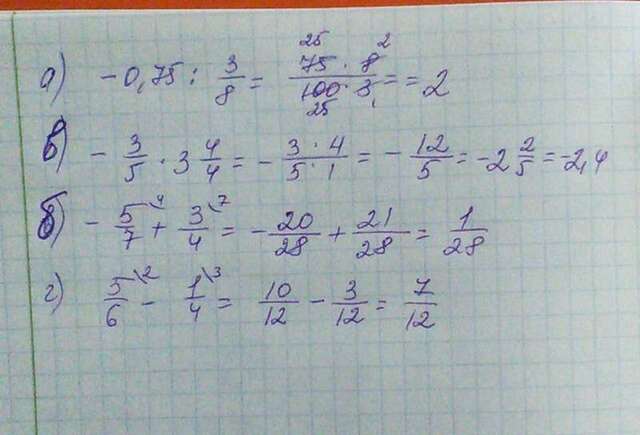 а) -0,75 : 3/8 = 75 · 8 / 100 · 3 = = 2
25 2 25 1
в) - 3/5 · 3 4/4 = - 3 · 4 / 5 · 1 = - 12/5 = -2 2/5 = -2,4
б) - 5/7 \4 + 3/4 \7 = - 20/28 + 21/28 = 1/28
г) 5/6 \2 - 1/4 \3 = 10/12 - 3/12 = 7/12